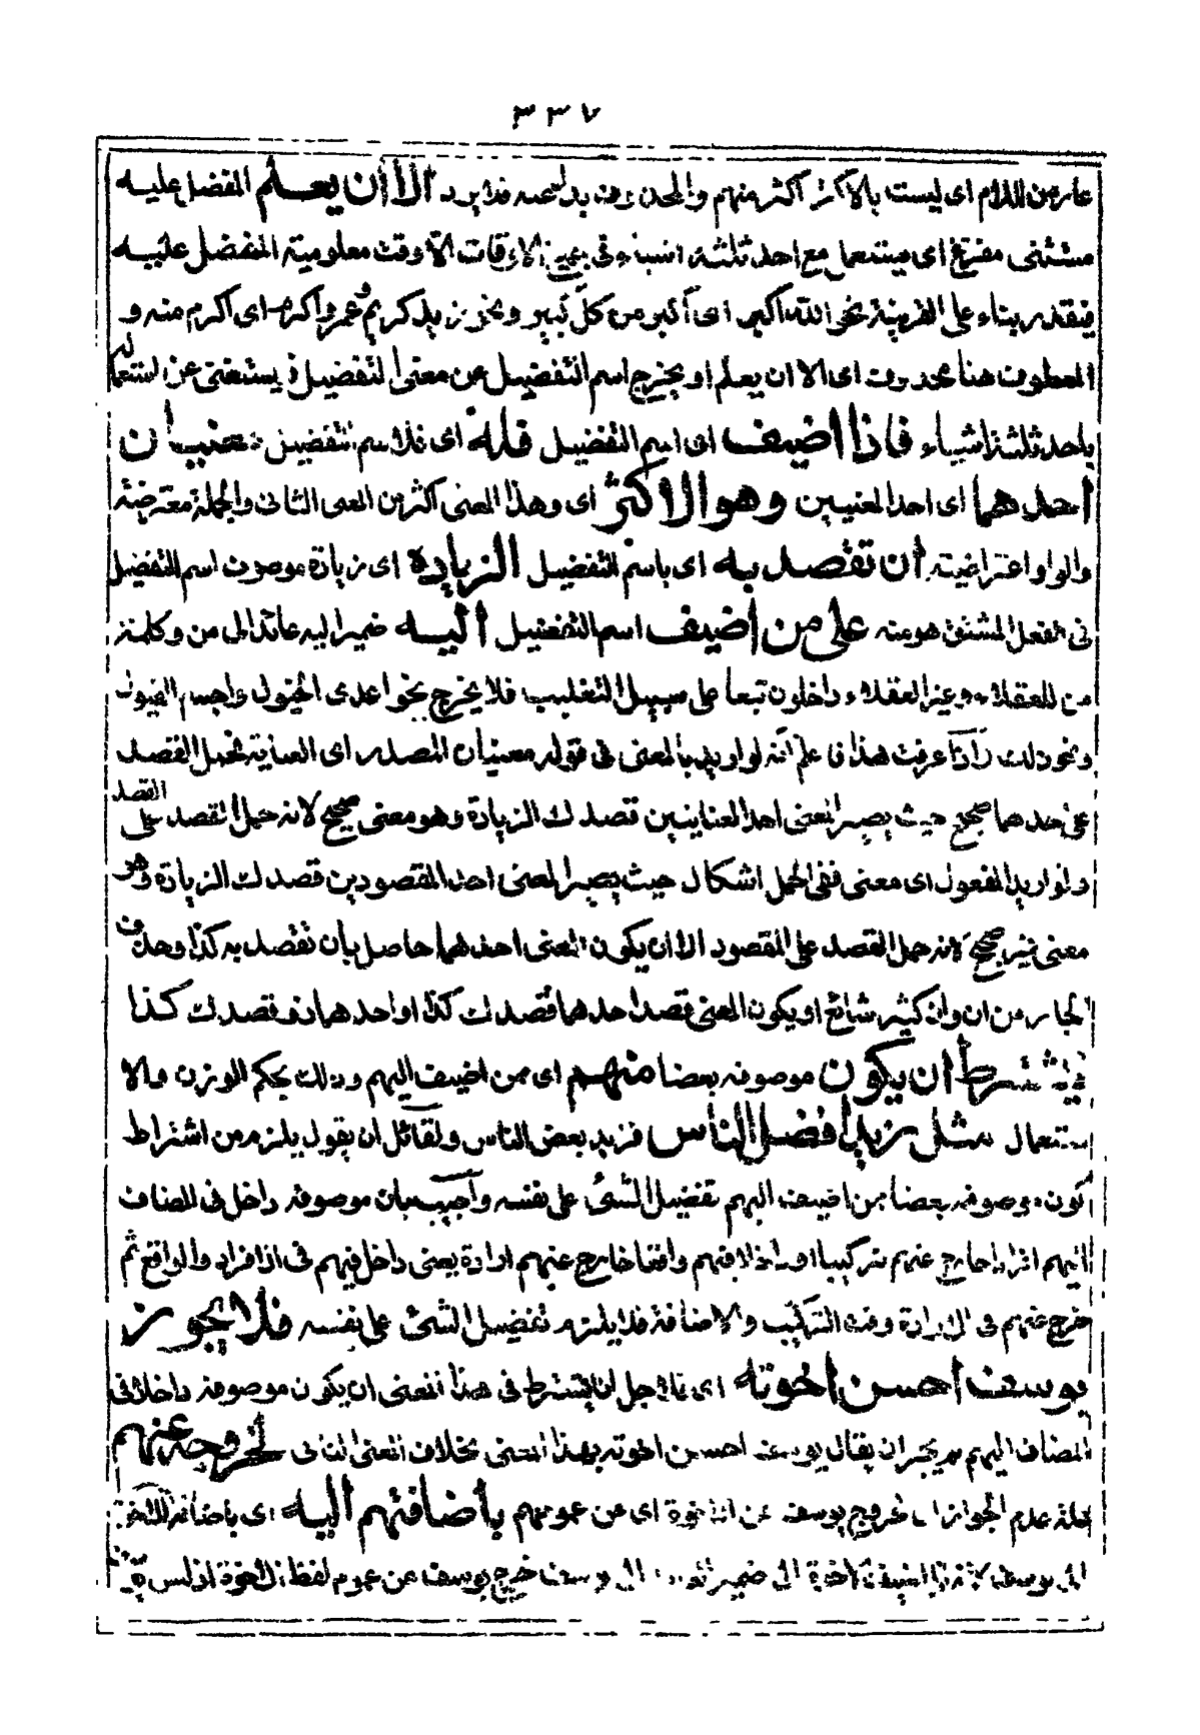 ٣٣٧
عار من اللام اى ليست بالاكثر اكثر منهم الا ان يعلم المفضل عليه
مستثنى مفرغ اى يستعمل مع احد ثلثة اشياء فى جميع الاوقات الا وقت معلومية المفضل عليه
فيقدر بناء على القرينة نحو الله اكبر اى اكبر من كل كبير ونحو زيد كريم وعمرو اكرم اى اكرم منه و
المعطوف هنا محذوف اى الا ان يعلم او يخرج اسم التفضيل عن معنى التفضيل فيستغنى عن استعماله
باحد ثلثة اشياء فاذا اضيف اى اسم التفضيل فله اى فلاسم التفضيل معنيان
احدهما اى احد المعنيين وهو الاكثر اى وهذا المعنى اكثر من المعنى الثانى والجملة معترضة
والواو اعتراضية ان تقصد به اى باسم التفضيل الزيادة اى زيادة موصوف اسم التفضيل
فى الفعل المشتق هو منه على من اضيف اسم التفضيل اليه ضمير اليه عائد الى من وكلمة
من للعقلاء وغير العقلاء داخلون تبعا على سبيل التغليب فلا يخرج نحو اعدى الخيول واجسم الفيول
ونحو ذلك واذا عرفت هذا فاعلم انه لو اريد بالمعنى فى قوله معنيان المصدر اى العناية فحمل القصد
على احدهما صحيح حيث يصير المعنى احد العنايتين قصدك الزيادة وهو معنى صحيح لانه حمل القصد على القصد
ولو اريد المفعول اى معنى ففى الحمل اشكال حيث يصير المعنى احد المقصودين قصدك الزيادة وهو
معنى غير صحيح لانه حمل القصد على المقصود الا ان يكون المعنى احدهما حاصل بأن تقصد به كذا وحذف
الجار من ان وان كثير شائع او يكون المعنى قصد احدهما قصدك كذا او احدهما ذو قصدك كذا
فيشترط ان يكون موصوفه بعضا منهم اى ممن اضيف اليهم وذلك بحكم الوزن والا
ستعمال مثل زيد افضل الناس فزيد بعض الناس ولقائل ان يقول يلزم من اشتراط
كون موصوفه بعضا ممن اضيف اليهم تفضيل الشئ على نفسه واجيب بان موصوفه داخل فى المضاف
اليهم افرادا خارج عنهم تركيبا خارج عنهم ارادة يعنى داخل فيهم فى الافراد والواقع ثم
خرج عنهم فى الارادة وقت التركيب والاضافة فلا يلزم تفضيل الشئ على نفسه فلا يجوز
يوسف احسن اخوته اى فلاجل انا نشترط فى هذا المعنى ان يكون موصوفه داخلا فى
المضاف اليهم لم يجز ان يقال يوسف احسن اخوته بهذا المعنى بخلاف المعنى الثانى لخروجه عنهم
علة عدم الجواز اى خروج يوسف عن الاخوة اى من عمومهم باضافتهم اليه اى باضافة الاخوة
الى يوسف لانه لما اضيف الاخوة الى ضمير الى يوسف خرج يوسف من عموم لفظ الاخوة اذ ليس